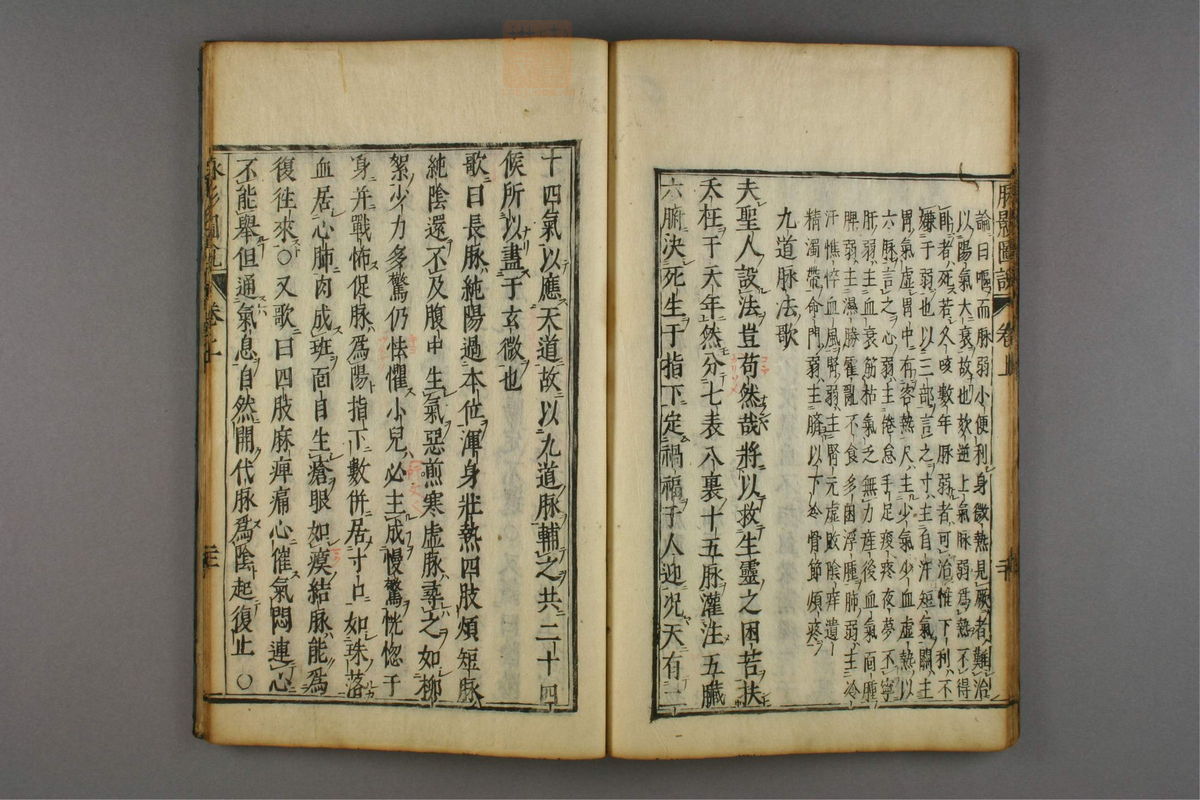 脉影圖說 卷上 二十
論曰嘔而脉弱小便利身微熱見厥者難治
以陽氣大衰故也欬逆上氣脉弱爲熱不得
臥者死若久咳數年脉弱者可治惟下利不
嫌于弱也以三部言之寸主自汗短氣關主
胃氣虛胃中有客熱尺主少氣少血虛熱以
六脉言之心弱主倦怠手足疼夜夢不寧
肝弱主血衰筋枯氣乏無力產後血氣面腫
脾弱主濕勝霍亂不食多困浮腫肺弱主冷
汗憔悴血風腎弱主腎元虛敗陰痒遺
精濁帶命門弱主臍以下冷骨節煩疼
九道脉法歌
夫聖人設法豈苟然哉將以救生靈之困苦扶
夭枉于天年然分七表八裏十五脉灌注五臟
六腑決死生于指下定禍福于人迎況天有二
十四氣以應天道故以九道脉輔之共二十四
候所以盡于玄微也
歌曰長脉純陽過本位渾身壯熱四肢煩短脉
純陰還不及腹中生氣惡煎寒虛脉尋之如柳
絮少力多驚仍怯懼小兒必主成慢驚恍惚于
身并戰怖促脉爲陽指下數併居寸口如珠落
血居心肺肉成班面自生瘡眼如瘼結脉能爲
復往來○又歌曰四肢麻痺痛心催氣悶連心
不能舉但通氣息自然開代脉爲陰起復止○